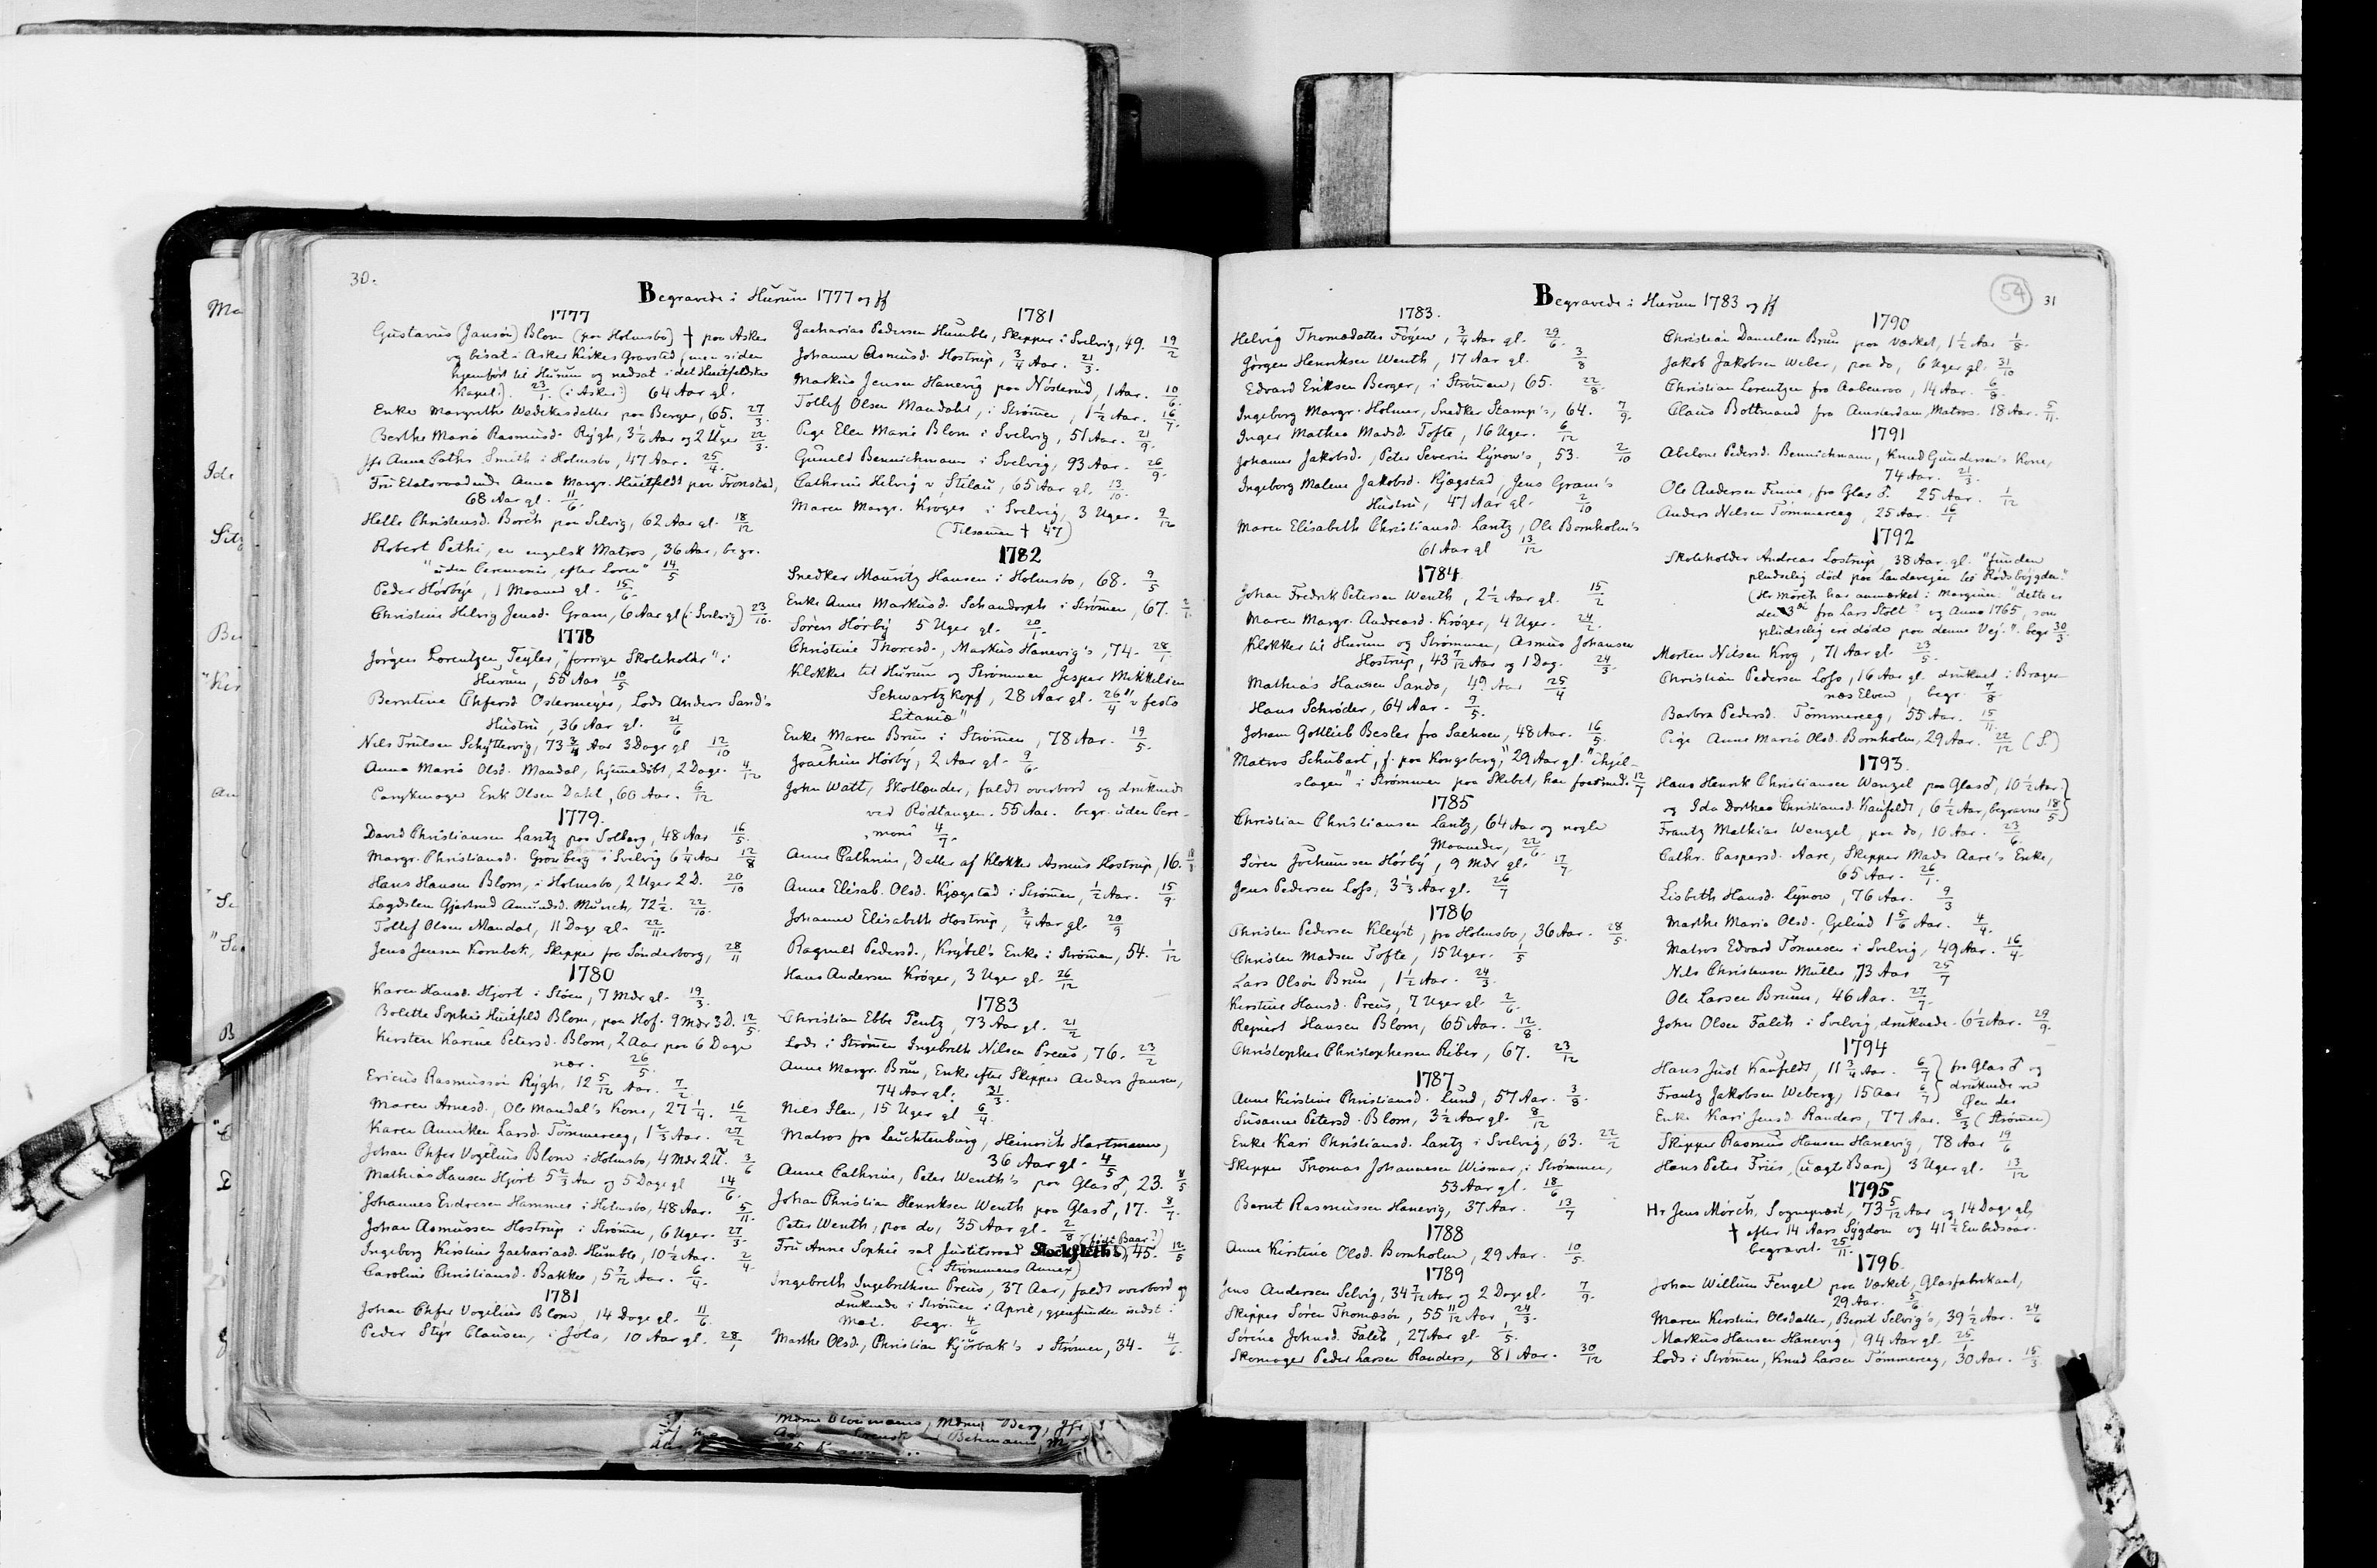 30.
Begravede i Hurum 1777 og ff
1777
Gustavus (Jansøn) Blom (paa Holmsbo) † paa Asker
og bisat i Asker Kirkes Gravsted (men siden
hjemført til Hurum og nedsat i det Huitfeldtske
Kapel.) 23/1. (i Asker:) 64 Aar gl.
Enke Margrethe Wedekesdatter paa Berger, 65. 27/3.
Berthe Maria Rasmusd. Rÿgh, 3 1/6 Aar og 2 Uger 22/3.
Jfr Anna Cathr. Smith i Holmsbo, 47 Aar. 25/4.
Fru Etatsraadinde Anna Margr. Huitfeldt paa Tronstad,
68 Aar gl. 11/6.
Helle Christensd. Borch paa Selvig, 62 Aar gl. 18/12
Robert Pethi, en engelsk Matros, 36 Aar, begr.
"uden Ceremonie, efter Loven" 14/5
Peder Hörbÿe, 1 Maaned gl. 15/6.
Christine Helvig Jensd. Gram, 6 Aar gl (i Svelvig) 23/10.
1778
Jørgen Lorentzen Teyler, "forrige Skoleholder" i
Hurum, 55 Aar 10/5
Berntine Chfersd Ostermeÿer, Lods Anders Sand's
Hustru, 36 Aar gl. 21/6
Nils Trulsen Schÿttervig, 73 3/4 Aar 3 Dage gl 12/10
Anna Maria Olsd. Mandal, hjemmedöbt, 2 Dage. 4/12
Parykmager Erik Olsen Dahl, 60 Aar. 6/12
1779.
David Christiansen Lantz paa Solberg, 48 Aar 16/5.
Margr. Christiansd. Grønberg i Svelvig 6 1/4 Aar 12/8
Hans Hansen Blom, i Holmsbo, 2 Uger 2 D. 20/10
Lægdslem Gjertrud Amundsd. Munch, 72 1/2. 22/10.
Tollef Olsen Mandal, 11 Dage gl. 22/11.
Jens Jensen Kornbek, Skipper fra Sönderborg, 28/11
1780
Karen Hansd. Hjort i Støen, 7 Mdr gl. 19/3.
Bolette Sophie Huitfeld Blom, paa Hof. 9 Mdr 3 D. 12/5.
Kirsten Karine Petersd. Blom, 2 Aar paa 6 Dage
nær. 26/5
Ericus Rasmussøn Rÿgh, 12 5/12 Aar. 7/2.
Maren Arnesd., Ole Mandal's Kone, 27 1/4. 16/2
Karen Anniken Larsd. Tömmeraag, 1 2/3 Aar. 27/2
Johan Chfer Vogelius Blom i Holmsbo, 4 Mdr 2 U. 3/6
Mathias Hansen Hjort 5 2/3 Aar og 5 Dage gl 14/6.
Johannes Endresen Hammer i Holmsbo, 48 Aar. 5/11.
Johan Asmussen Hostrup i Strømen, 6 Uger. 27/3.
Ingeborg Kirstine Zachariasd. Humble, 10 1/2 Aar. 2/4.
Caroline Christiansd. Bakke, 5 7/12 Aar. 6/4.
1781
Johan Chfer Vogelius Blom, 14 Dage gl. 11/6.
Peder Stÿr Clausen, i Jota, 10 Aar gl. 28/1
1781
Zacharias Pedersen Humble, Skipper i Svelvig, 49. 19/2
Johanne Asmusd. Hostrup, 3/4 Aar. 21/3.
Markus Jensen Hanevig paa Nösterud, 1 Aar. 10/6.
Tollef Olsen Mandahl, i Strømen, 1 1/2 Aar. 16/7.
Pige Elen Marie Blom i Svelvig, 51 Aar. 21/9.
Gunild Bennichmann i Svelvig, 93 Aar. 26/9.
Cathrine Helvig v Stilau, 65 Aar gl. 13/10.
Maren Margr. Krøger i Svelvig, 3 Uger. 9/12
(Tilsamen † 47)
1782
Snedker Mauritz Hansen i Holmsbo, 68. 9/5
Enke Anne Markusd. Schandorph i Strømen, 67. 2/1.
Søren Hörbÿ 5 Uger gl. 20/1.
Christine Thoresd., Markus Hanevig's, 74. 28/1
Klokker til Hurum og Strömmen Jesper Mikkelsen
Schwartzkopf, 28 Aar gl. 26/4 "v festo
Litaniæ"
Enke Maren Brun i Strømen, 78 Aar. 19/5.
Joachim Hörbÿ, 2 Aar gl. 9/6.
John Watt, Skotlænder, faldt overbord og druknede
ved Rödtangen. 55 Aar. begr. uden Cere-
moni 4/7.
Anne Cathrine, Datter af Klokker Asmus Hostrup, 16.
Anne Elisab. Olsd. Kjægstad i Strømen, 1/2 Aar. 15/9.
Johanne Elisabeth Hostrup, 3/4 Aar gl. 20/9
Ragnild Pedersd., Krÿbel's Enke i Strømen, 54. 1/12
Hans Andersen Kröger, 3 Uger gl. 26/12
1783
Christian Ebbe Pentz, 73 Aar gl. 21/2
Lods i Strømen Ingebreth Nilsen Preus, 76. 23/2
Anne Margr. Brun, Enke efter Skipper Anders Jansen,
74 Aar gl. 31/3.
Nils Ilen, 15 Uger gl 6/4.
Matros fra Luchtenburg, Heinrich Hartmann,
36 Aar gl. 4/5
Anne Cathrine, Peter Wenth's paa Glas♂, 23. 8/5
Johan Christian Henriksen Wenth paa Glas♂, 17. 8/7.
Peter Wenth, paa do, 35 Aar gl. 2/8
(født Baar?)
Fru Anne Sophie sal Justitsraad Stockfleth's, 45. 12/5
(i Strømmens Annex)
Ingebreth Ingebrethsen Preus, 37 Aar, faldt overbord og
druknede i Strømen i April, gjenfunden indst i
Mai. begr. 4/6
Marthe Olsd., Christian Kjörbak's i Strömen, 34. 4/6.
54
31
Begravede i Hurum 1783 og ff
1783.
Helvig Thomædatter Föyen, 3/4 Aar gl. 29/6.
Jørgen Henriksen Wenth, 17 Aar gl. 3/8
Edvard Eriksen Berger, i Strømen, 65. 22/8.
Ingeborg Margr. Holmer, Snedker Stamp's, 64. 7/9.
Inger Mathea Madsd. Tofte, 16 Uger. 6/12
Johanne Jakobsd., Peter Severin Lÿnow's, 53. 2/10
Ingeborg Malene Jakobsd. Kjægstad, Jens Gram's
Hustru, 47 Aar gl. 2/10
Maren Elisabeth Christiansd. Lantz, Ole Bornholm's
61 Aar gl 13/12
1784.
Johan Fredrik Petersen Wenth, 2 1/2 Aar gl. 15/2
Maren Margr. Andreasd. Kröger, 4 Uger. 24/2.
Klokker til Hurum og Strømmen, Asmus Johansen
Hostrup, 43 7/12 Aar og 1 Dag. 24/3.
Mathias Hansen Sando, 49 Aar 25/4
Hans Schröder, 64 Aar. 9/5.
Johan Gottlieb Besler fra Sachsen, 48 Aar. 16/5.
"Matros Schubart, f. paa Kongsberg," 29 Aar gl. "ihjel-
slagen" i Strømmen paa Skibet, han foer med. 12/7
1785
Christian Christiansen Lantz, 64 Aar og nogle
Maaneder, 22/6.
Sören Jochumsen Hörbÿ, 9 Mdr gl. 17/7.
Jens Pedersen Lofs, 3 1/3 Aar gl. 26/7
1786
Christen Pedersen Kleÿst, fra Holmsbo, 36 Aar. 28/5.
Christen Madsen Tofte, 15 Uger. 1/5
Lars Olsøn Brun, 1 1/2 Aar. 24/3.
Kirstine Hansd. Preus, 7 Uger gl. 2/6.
Regnert Hansen Blom, 65 Aar. 12/8.
Christopher Christophersen Riber, 67. 23/12
1787
Anne Kirstine Christiansd. Lund, 57 Aar. 3/8.
Susanne Petersd. Blom, 3 1/2 Aar gl. 8/12
Enke Kari Christiansd. Lantz i Svelvig, 63. 22/2
Skipper Thomas Johannesen Wismar, i Strömmen,
53 Aar gl. 18/6
Bernt Rasmussen Hanevig, 37 Aar. 13/7
1788
Anne Kirstine Olsd. Bornholm, 29 Aar. 10/5.
1789
Jens Andersen Selvig, 34 7/12 Aar og 2 Dage gl. 7/9.
Skipper Sören Thomæsøn, 55 11/12 Aar 24/3.
Sørine Johnsd. Falch, 27 Aar gl. 1/5.
Skomager Peder Larsen Randers, 81 Aar. 30/12
1790
Christian Danielsen Brun paa Værket, 1 1/2 Aar 1/8.
Jakob Jakobsen Weber, paa do, 6 Uger gl. 31/10
Christian Lorentzen fra Aabenraa, 14 Aar. 6/8.
Claus Bottmand fra Amsterdam, Matros. 18 Aar. 5/11.
1791
Abelone Pedersd. Bennichmann, Knud Gundersen's Kone,
74 Aar. 21/3.
Ole Andersen Finne, fra Glas♂. 25 Aar. 1/12
Anders Nilsen Tömmeraag, 25 Aar. 16/1
1792
Skoleholder Andreas Lostrup, 38 Aar gl. "funden
pludselig död paa Landevejen til Rödsbÿgden."
(Hr Mörch har anmærket i Marginen: "dette er
den 3die fra Lars Stolt? og Anno 1765, som
pludselig ere döde paa denne Vej". begr 30/3.
Morten Nilsen Krog, 71 Aar gl. 23/5.
Christian Pedersen Lofs, 16 Aar gl. druknet i Brager-
næs Elven, begr. 7/8.
Barbra Pedersd. Tömmeraag, 55 Aar. 15/11.
Pige Anne Marie Olsd. Bornholm, 29 Aar. 22/12 (S.)
1793.
Hans Henrik Christiansen Wenzel paa Glas♂, 10 1/2 Aar.
og Ida Dorthea Christiansd. Kaufeldt, 6 1/2 Aar, begravne 18/5
Frantz Mathias Wenzel, paa do, 10 Aar. 23/6
Cathr. Caspersd. Aare, Skipper Mads Aare's Enke,
65 Aar. 26/1.
Lisbeth Hansd. Lÿnow, 76 Aar. 9/3
Marthe Maria Olsd. Gelind 1 5/6 Aar. 4/4.
Matros Edvard Tönnesen i Svelvig, 49 Aar. 16/4.
Nils Christensen Müller, 73 Aar 25/7
Ole Larsen Bruun, 46 Aar. 27/7.
John Olsen Falch i Svelvig druknede. 6 1/2 Aar. 29/9.
1794
Hans Just Kaufeldt, 11 3/4 Aar. 6/7 } fra Glas♂ og
Frantz Jakobsen Weberg, 15 Aar 6/7 } druknede ved
Øen der
Enke Kari Jensd. Randers, 77 Aar. 8/3 (Strömen)
Skipper Rasmus Hansen Hanevig, 78 Aar 19/6
Hans Peter Friis, (uægte Barn) 3 Uger gl. 13/12
1795
Hr Jens Mörch, Sognepræst, 73 5/12 Aar og 14 Dage gl,
† efter 14 Aars Sÿgdom og 41 1/2 Embedsaar.
begravet. 25/11.
1796.
Johan Willum Fengel paa Værket, Glasfabrikant,
29 Aar. 5/6
Maren Kirstine Olsdatter, Bernt Selvig's, 39 1/2 Aar. 24/6
Markus Hansen Hanevig, 94 Aar gl. 25/1
Lods i Strømen, Knud Larsen Tömmeraag, 30 Aar. 15/3